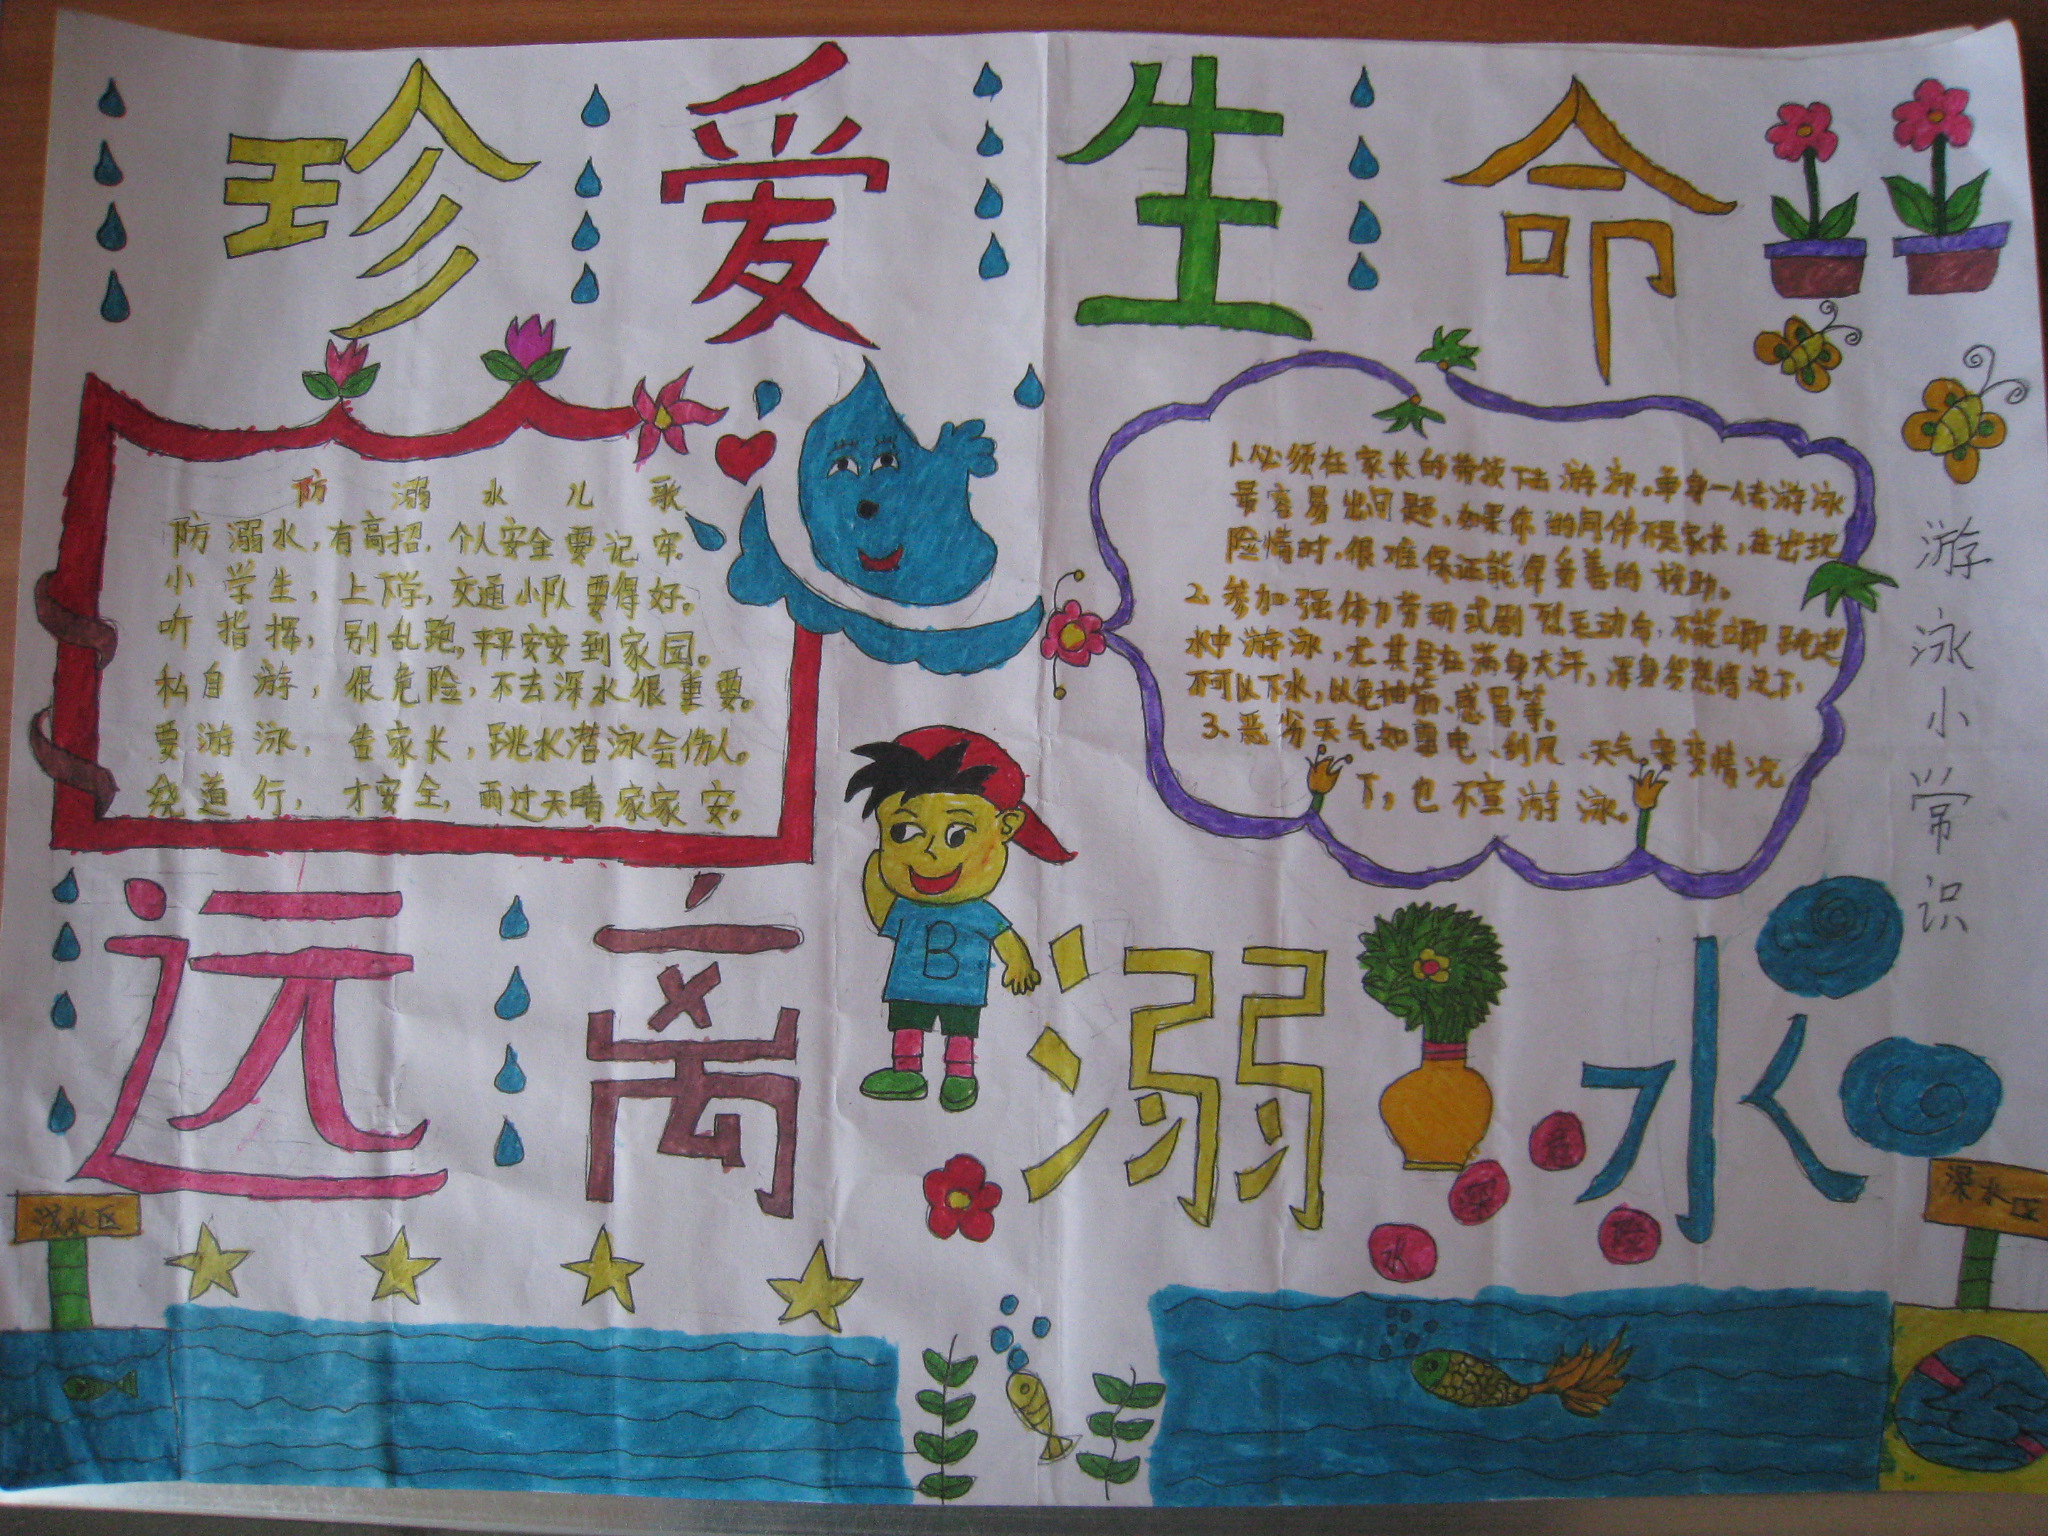 珍爱生命
防溺水儿歌
防溺水,有高招,个人安全要记牢。
小学生,上下学,交通小队要得好。
听指挥,别乱跑,平平安安到家园。
私自游,很危险,不去深水很重要。
要游泳,告家长,跳水潜泳会伤人。
绕道行,才安全,雨过天晴家家安。
1、必须在家长的带领下去游泳。单身一人去游泳
最容易出问题、如果你的同伴不是家长,在出现
险情时,很难保证能得到妥善的救助。
2、参加强体力劳动或剧烈运动后,不能立即跳进
水中游泳,尤其是在满身大汗,浑身发热情况下,
不可以下水,以免抽筋、感冒等。
3、恶劣天气如雷电、刮风、天气突变情况
下,也不宜游泳。
游泳小常识
远离溺水
B
危
深
水
险
浅水区
深水区